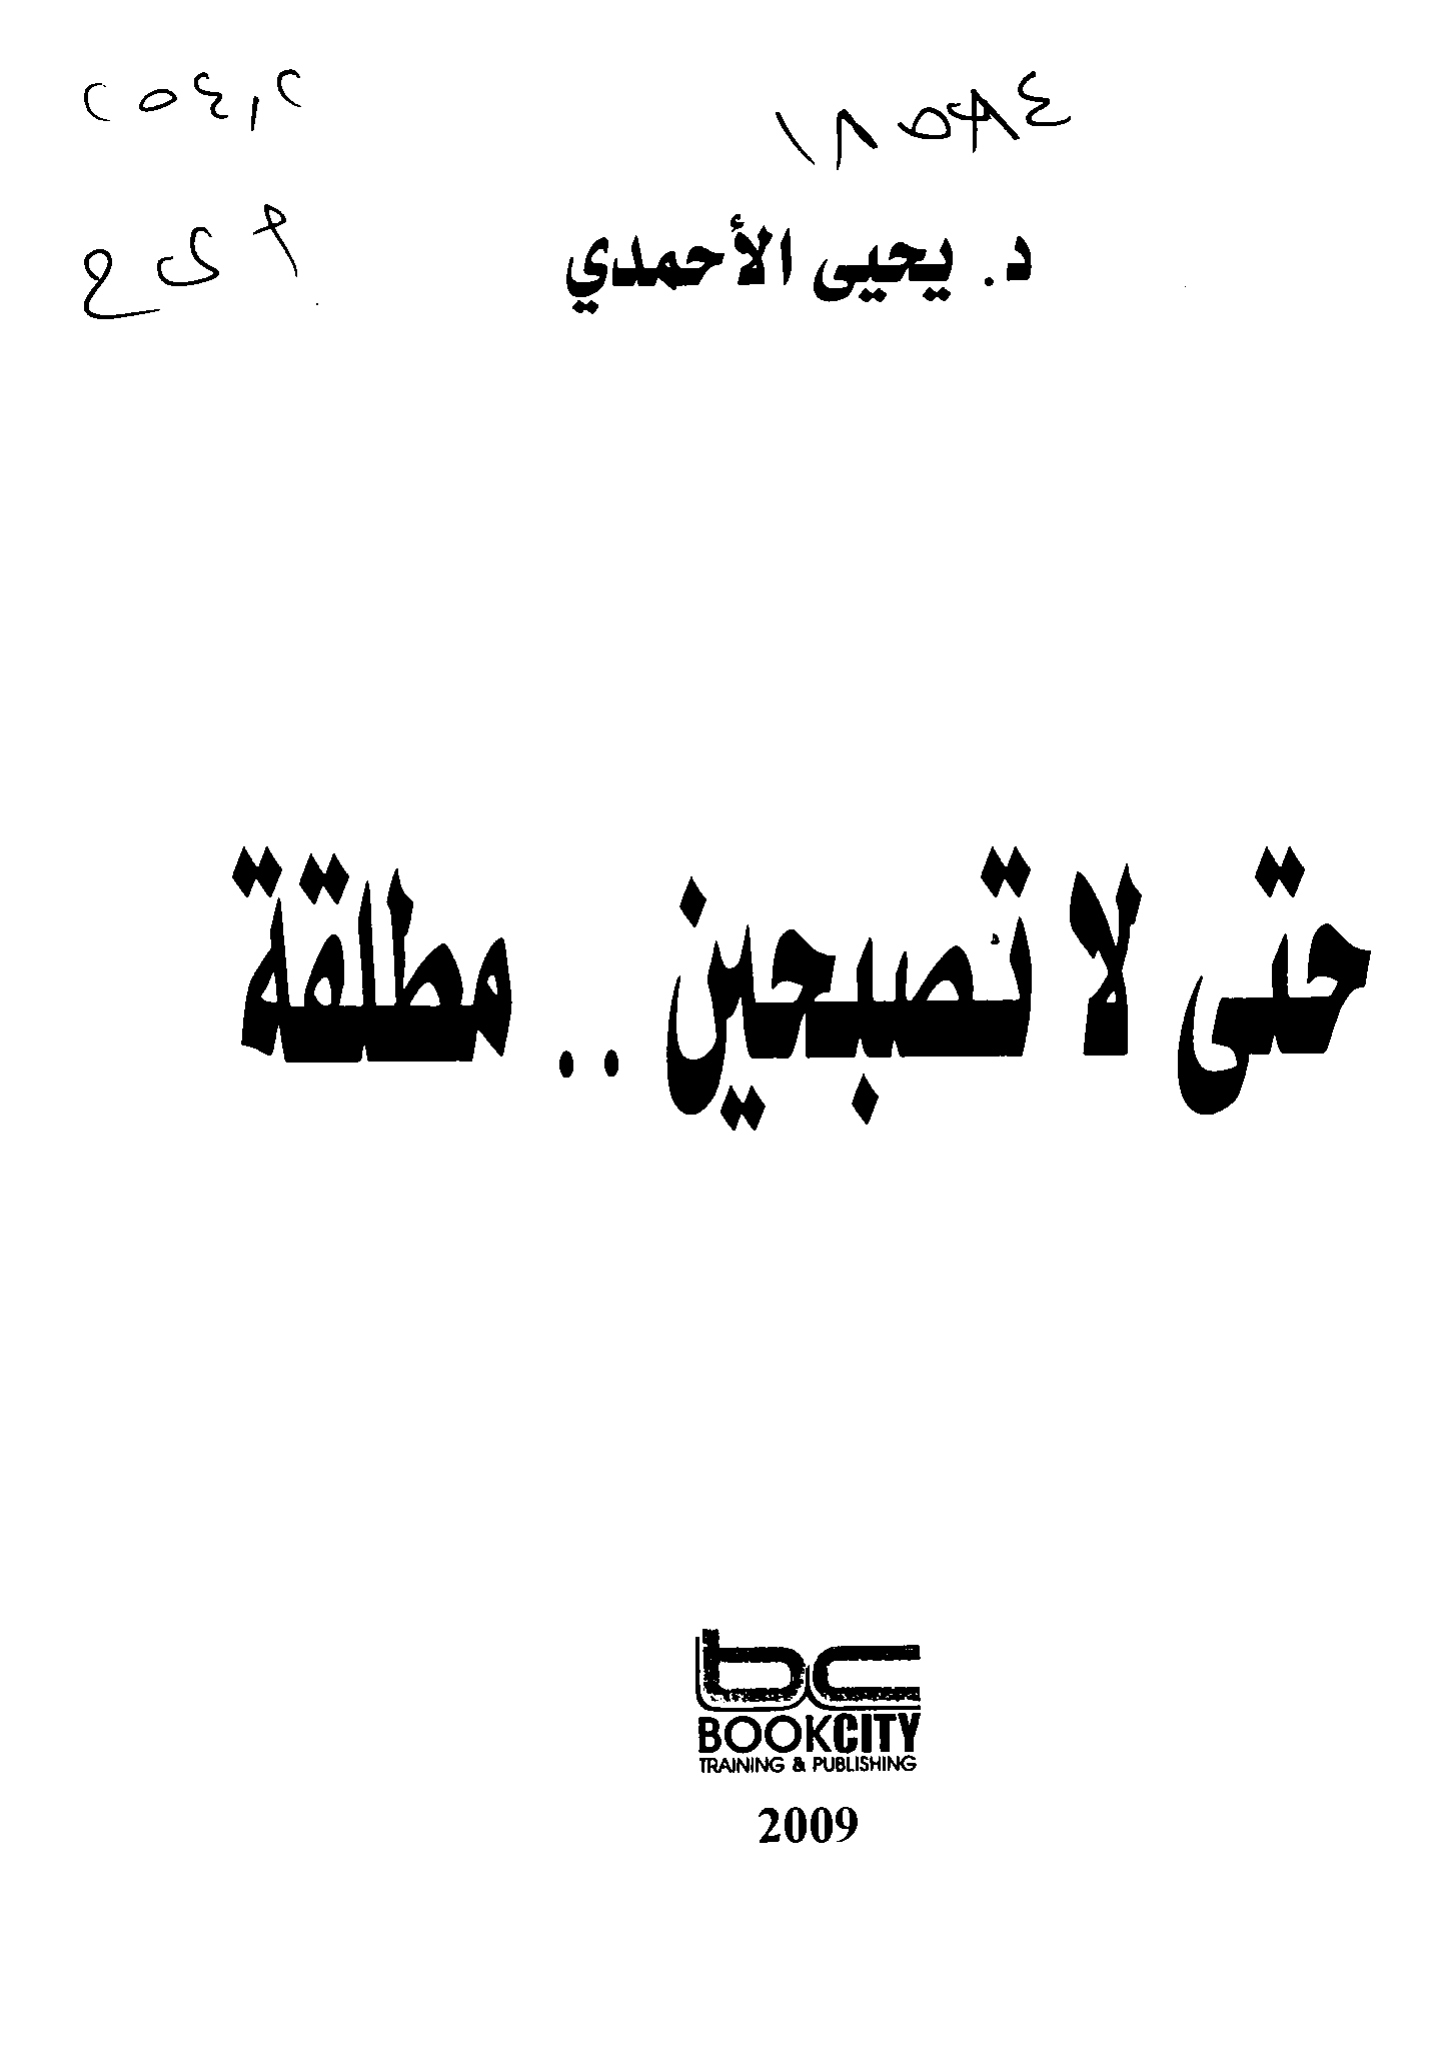 د. يحيى الأحمدي
حتى لا تصبحين .. مطلقة
bc
BOOKCITY
TRAINING & PUBLISHING
2009